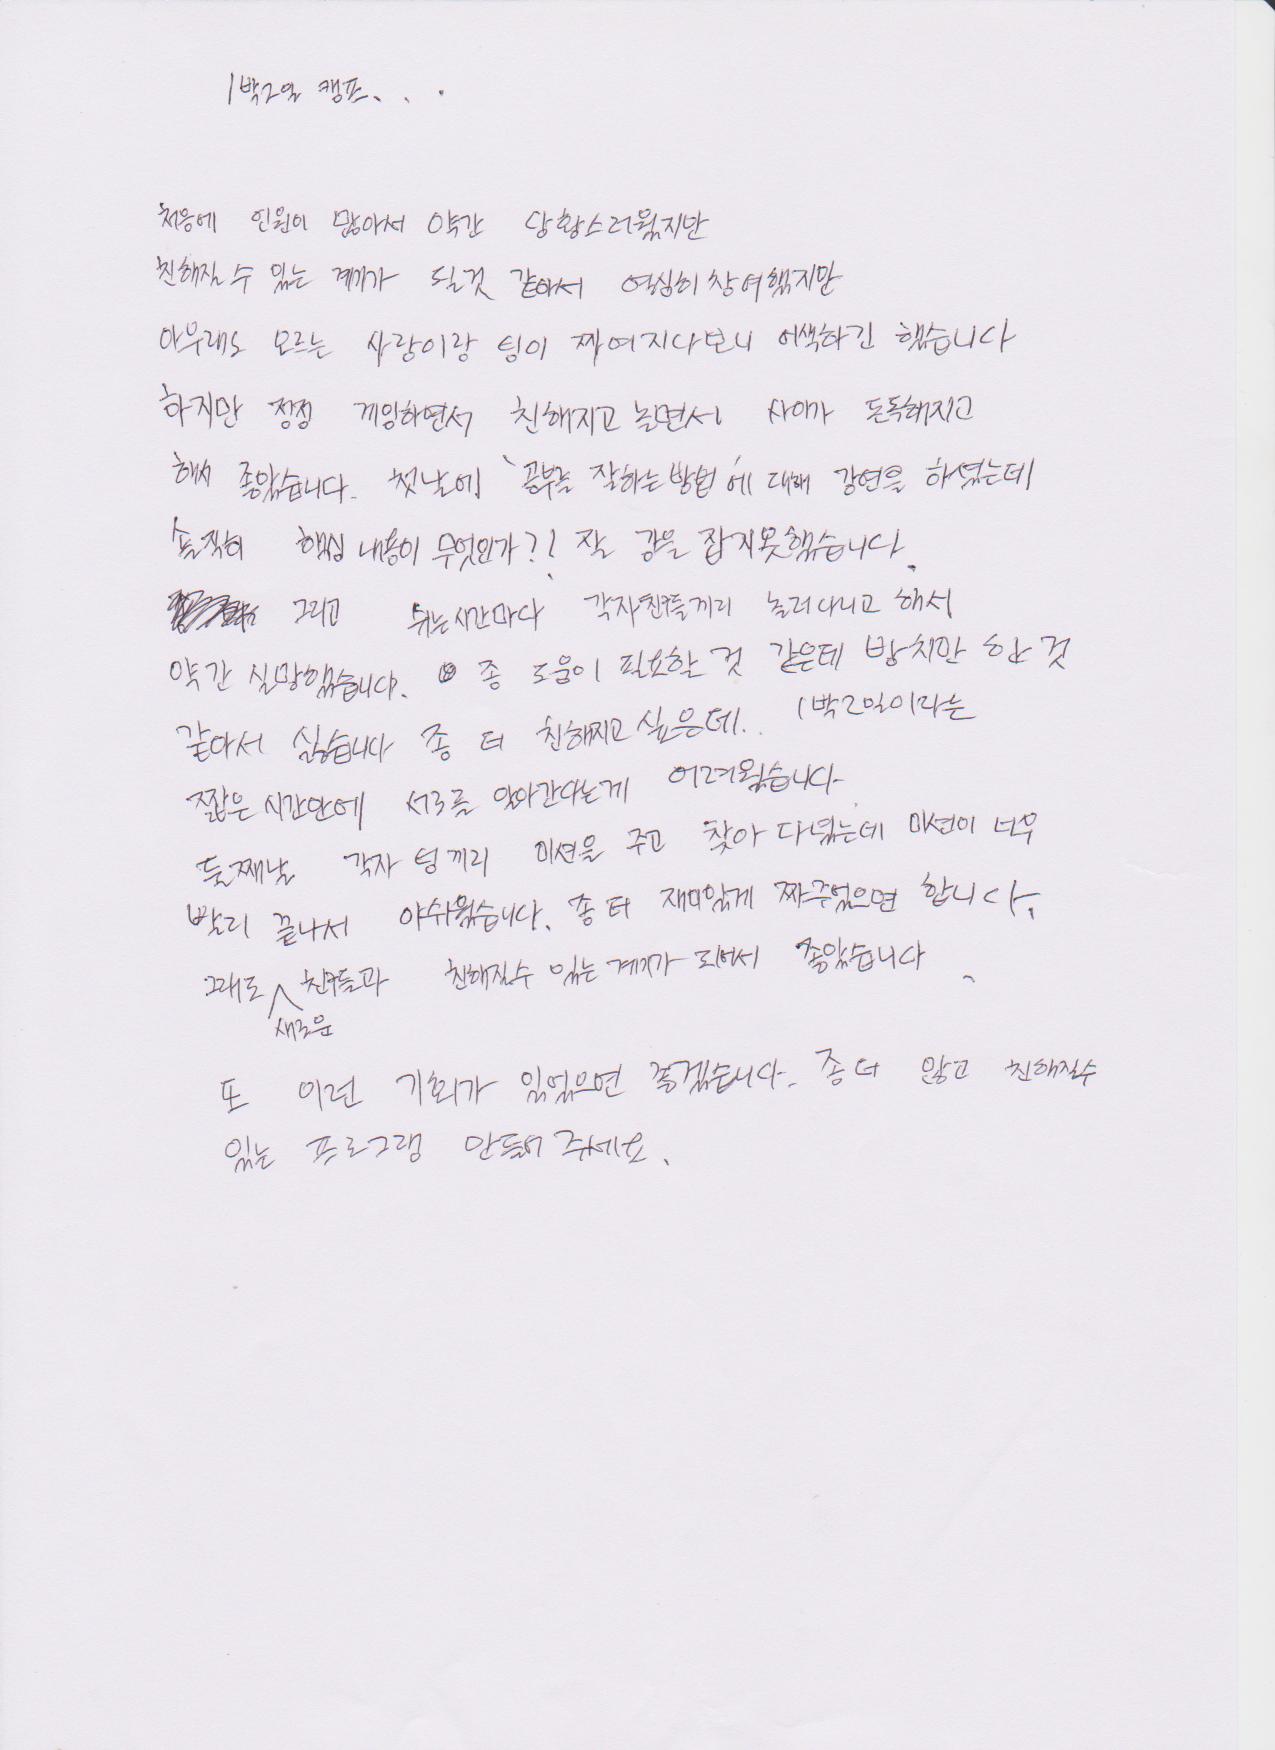 1박2일 캠프. . .
처음에 인원이 많아서 약간 당황스러웠지만
친해질 수 있는 계기가 될것 같아서 열심히 참여했지만
아무래도 모르는 사람이랑 팀이 짜여지다보니 어색하긴 했습니다
하지만 점점 게임하면서 친해지고 놀면서 사이가 돈독해지고
해서 좋았습니다. 첫날에 '공부를 잘하는 방법'에 대해 강연을 하셨는데
솔직히 핵심 내용이 무엇인가?! 잘 감을 잡지못했습니다.
그리고 쉬는시간마다 각자친구들끼리 놀러다니고 해서
약간 실망했습니다. 좀 도움이 필요할 것 같은데 방치만 한 것
같아서 싫습니다 좀 더 친해지고 싶은데.. 1박2일이라는
짧은 시간안에 서로를 알아간다는게 어려웠습니다.
둘째날 각자 팀끼리 미션을 주고 찾아 다녔는데 미션이 너무
빨리 끝나서 아쉬웠습니다. 좀 더 재미있게 짜주었으면 합니다.
그래도 새로운 친구들과 친해질수 있는 계기가 되어서 좋았습니다.
또 이런 기회가 있었으면 좋겠습니다. 좀 더 알고 친해질수
있는 프로그램 만들어 주세요.